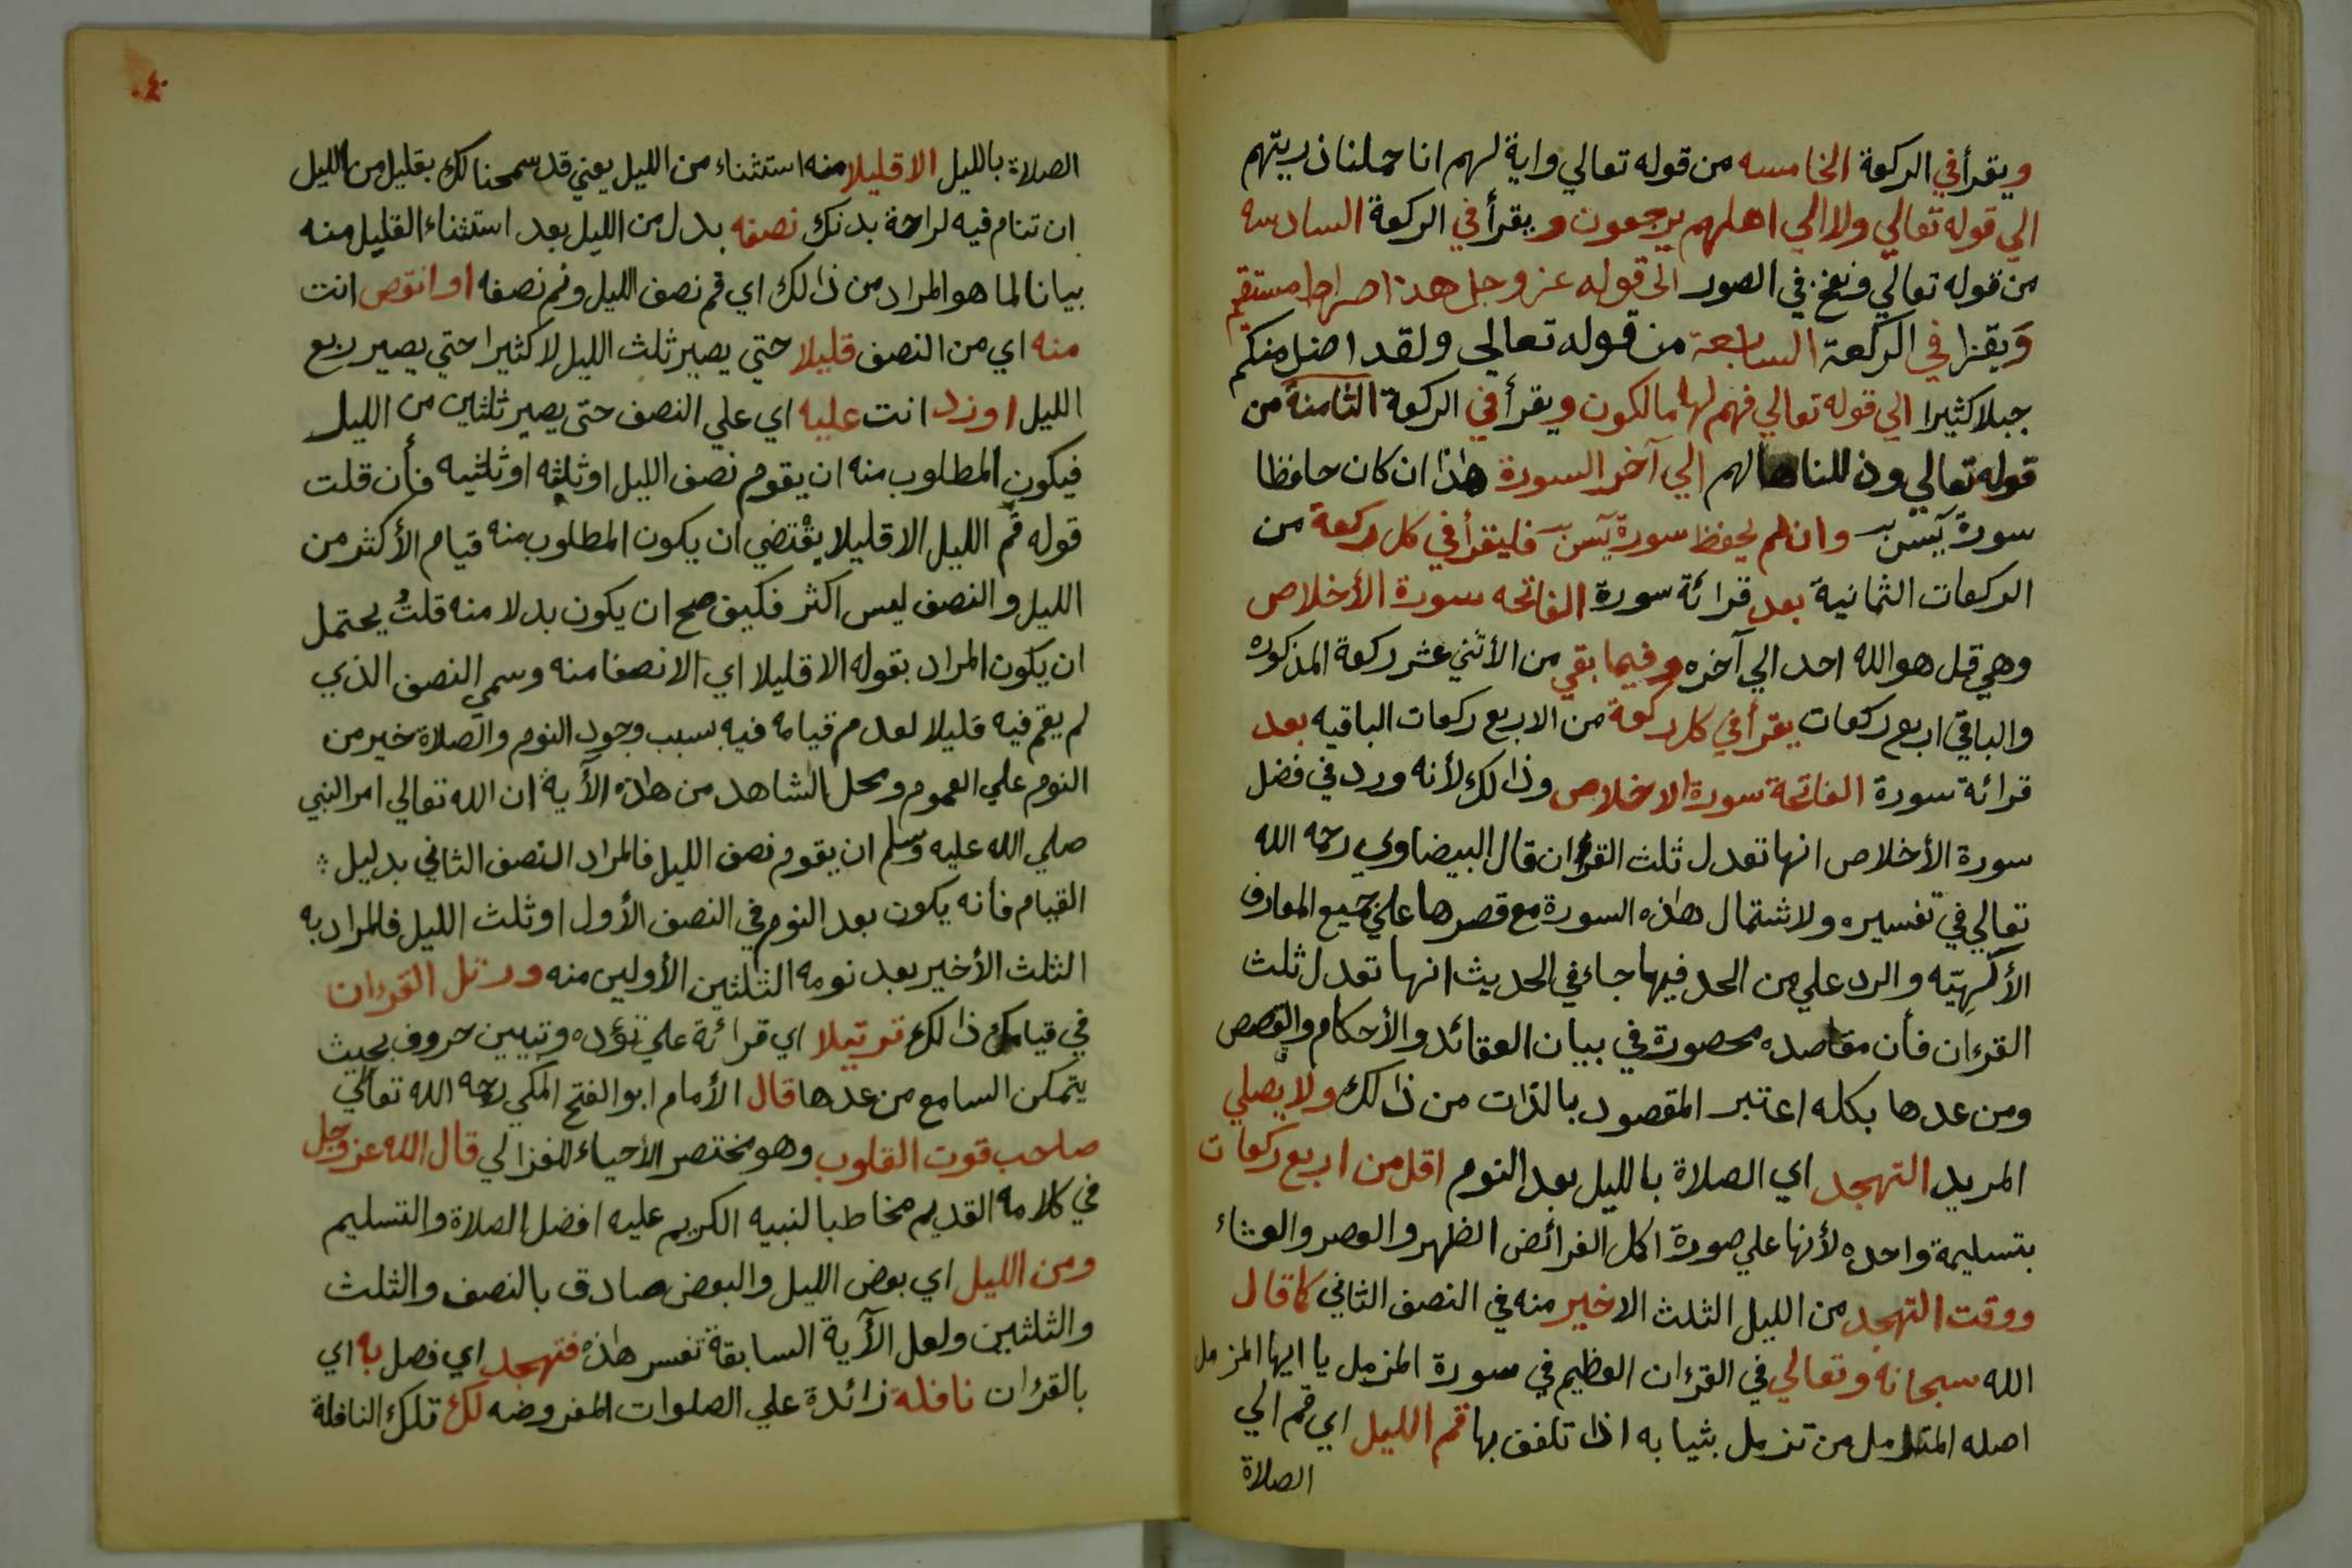 ويقرأ في الركعة الخامسه من قوله تعالي واية لهم انا حملنا ذريتهم
الي قوله تعالي ولا الي اهلهم يرجعون ويقرأ في الركعة السادسه
من قوله تعالي ونفخ في الصور الى قوله عز وجل هذا صراط مستقيم
وَيقرا في الركعة السابعة من قوله تعالى ولقد اضل منكم
جبلا كثيرا الي قوله تعالي فهم لها مالكون ويقرأ في الركعة الثامنة من
قوله تعالي وذللناها لهم الي آخر السورة هٰذا ان كان حافظا
سورة يٓسٓن وان لم يحفظ سورة يٓسٓن فليقرأ في كل ركعة من
الركعات الثمانية بعد قرائة سورة الفاتحه سورة الأخلاص
وهي قل هو الله احد الي آخره وفيما بقي من الأثني عشر ركعة المذكوره
والباقي اربع ركعات يقرأ في كل ركعة من الاربع ركعات الباقيه بعد
قرائة سورة الفاتحة سورة الاخلاص وذالك لأنه ورد في فضل
سورة الأخلاص انها تعدل ثلث القرءان قال البيضاوي رحمه الله
تعالي في تفسيره ولاشتمال هٰذه السورة مع قصرها علي جميع المعارف
الألٰهيّه والرد علي من الحد فيها جاء في الحديث انها تعدل ثلث
القرءان فأن مقاصده محصورة في بيان العقائد والأحكام والقصص
ومن عدها بكله اعتبر المقصود بالذات من ذالك ولا يصلي
المريد التهجد اي الصلاة بالليل بعد النوم اقل من اربع ركعات
بتسليمة واحده لأنها علي صورة اكمل الفرائض الظهر والعصر والعشاء
ووقت التهجد من الليل الثلث الاخير منه في النصف الثاني كما قال
الله سبحانه وتعالي في القرءان العظيم في سورة المزمل يا ايها المزمل
اصله المتزمل من تزمل بثيابه اذا تلفف بها قم الليل اي قم الي
الصلاة
٤٠
الصلاة بالليل الا قليلا منه استثناء من الليل يعني قد سمحنا لك بقليل من الليل
ان تنام فيه لراحة بدنك نصفه بدل من الليل بعد استثناء القليل منه
بيانا لما هو المراد من ذالك اي قم نصف الليل ونم نصفه او انقص انت
منه اي من النصف قليلا حتي يصير ثلث الليل لا كثيرا حتي يصير ربع
الليل او زد انت عليه اي علي النصف حتى يصير ثلثين من الليل
فيكون المطلوب منه ان يقوم نصف الليل او ثلثه او ثلثيه فأن قلت
قوله قم الليل الا قليلا يقتضي ان يكون المطلوب منه قيام الأكثر من
الليل والنصف ليس اكثر فكيف صح ان يكون بدلا منه قلتُ يحتمل
ان يكون المراد بقوله الا قليلا اي الا نصفا منه وسمي النصف الذي
لم يقم فيه قليلا لعدم قيامه فيه بسبب وجود النوم والصلاة خير من
النوم علي العموم ومحل الشاهد من هٰذه الأية ان الله تعالي امر النبي
صلي الله عليه وسلم ان يقوم نصف الليل فالمراد النصف الثاني بدليل
القيام فأنه يكون بعد النوم في النصف الأول او ثلث الليل فالمراد به
الثلث الأخير بعد نومه الثلثين الأولين منه ورتل القرءان
في قيامك ذالك ترتيلا اي قرائة علي تؤده وتبيين حروف بحيث
يتمكن السامع من عدها قال الأمام ابو الفتح المكي رحمه الله تعالي
صاحب قوت القلوب وهو مختصر الأحياء للغزالي قال الله عز وجل
في كلامه القديم مخاطبا لنبيه الكريم عليه افضل الصلاة والتسليم
ومن الليل اي بعض الليل والبعض صادق بالنصف والثلث
والثلثين ولعل الأية السابقة تفسر هٰذه فتهجد اي فصل به اي
بالقرءان نافلة زائدة علي الصلوات المفروضه لك تلك النافلة